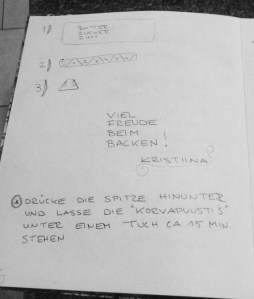 1)
BUTTER
ZUCKER
ZIMT
2)
3)
VIEL
FREUDE
BEIM
BACKEN!
KRISTIINA
DRÜCKE DIE SPITZE HINUNTER
UND LASSE DIE "KORVAPUUSTIS"
UNTER EINEM TUCH CA 15 MIN.
STEHEN